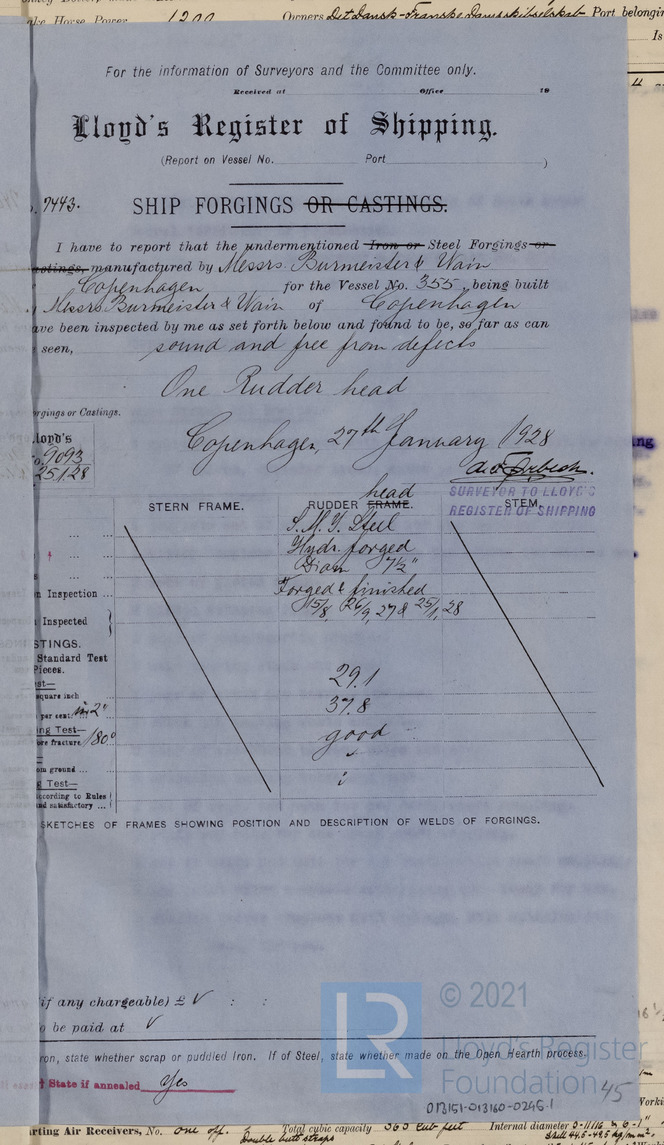 Horse Power 1200 Owners Det Dansk-Franske Dampskibsselskab Port belongin
Is
For the information of Surveyors and the Committee only.
Received at Office 19
Lloyd's Register of Shipping.
(Report on Vessel No. Port )
7443.
SHIP FORGINGS OR CASTINGS.
I have to report that the undermentioned Iron or Steel Forgings or
castings, manufactured by Messrs. Burmeister & Wain
Copenhagen for the Vessel No. 355, being built
Messrs Burmeister & Wain of Copenhagen
ave been inspected by me as set forth below and found to be, so far as can
seen, sound and free from defects
One Rudder head
orgings or Castings.
Copenhagen, 27th January 1928
loyd's
No. 9093
25.1.28
SURVEYOR TO LLOYD'S
REGISTER OF SHIPPING
STERN FRAME. RUDDER FRAME. head STEM.
S. M. I. Steel
Hydr. forged
Diam 7½"
Forged & finished
n Inspection ...
15/8, 26/9, 27 & 25/1, 28
Inspected
STINGS.
Standard Test
Pieces.
st—
29.1
square inch
per cent. in 2" 37.8
ng Test—
ore fracture 180° good
om ground ...
g Test—
ccording to Rules
and satisfactory ...
SKETCHES OF FRAMES SHOWING POSITION AND DESCRIPTION OF WELDS OF FORGINGS.
if any chargeable) £ √ : :
o be paid at √
© 2021
LR
Lloyd's Register
Foundation
ron, state whether scrap or puddled Iron. If of Steel, state whether made on the Open Hearth process.
† State if annealed yes
45
013151-013160-0245-1
rting Air Receivers, No. one off. Total cubic capacity 363 cub feet Internal diameter
Double butt straps